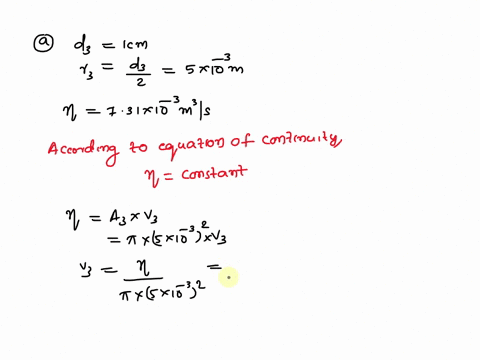 ⓐ d₃ = 1cm
r₃ = d₃/2 = 5×10⁻³m
η = 7.31×10⁻³m³/s
According to equation of continuity,
η = constant
η = A₃ × v₃
= π×(5×10⁻³)²×v₃
v₃ = η/π×(5×10⁻³)² =